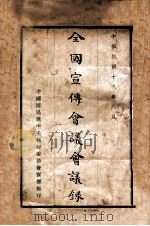 中華民國十八年
全國宣傳會議會議錄
中國國民黨中央執行委員會宣傳部印